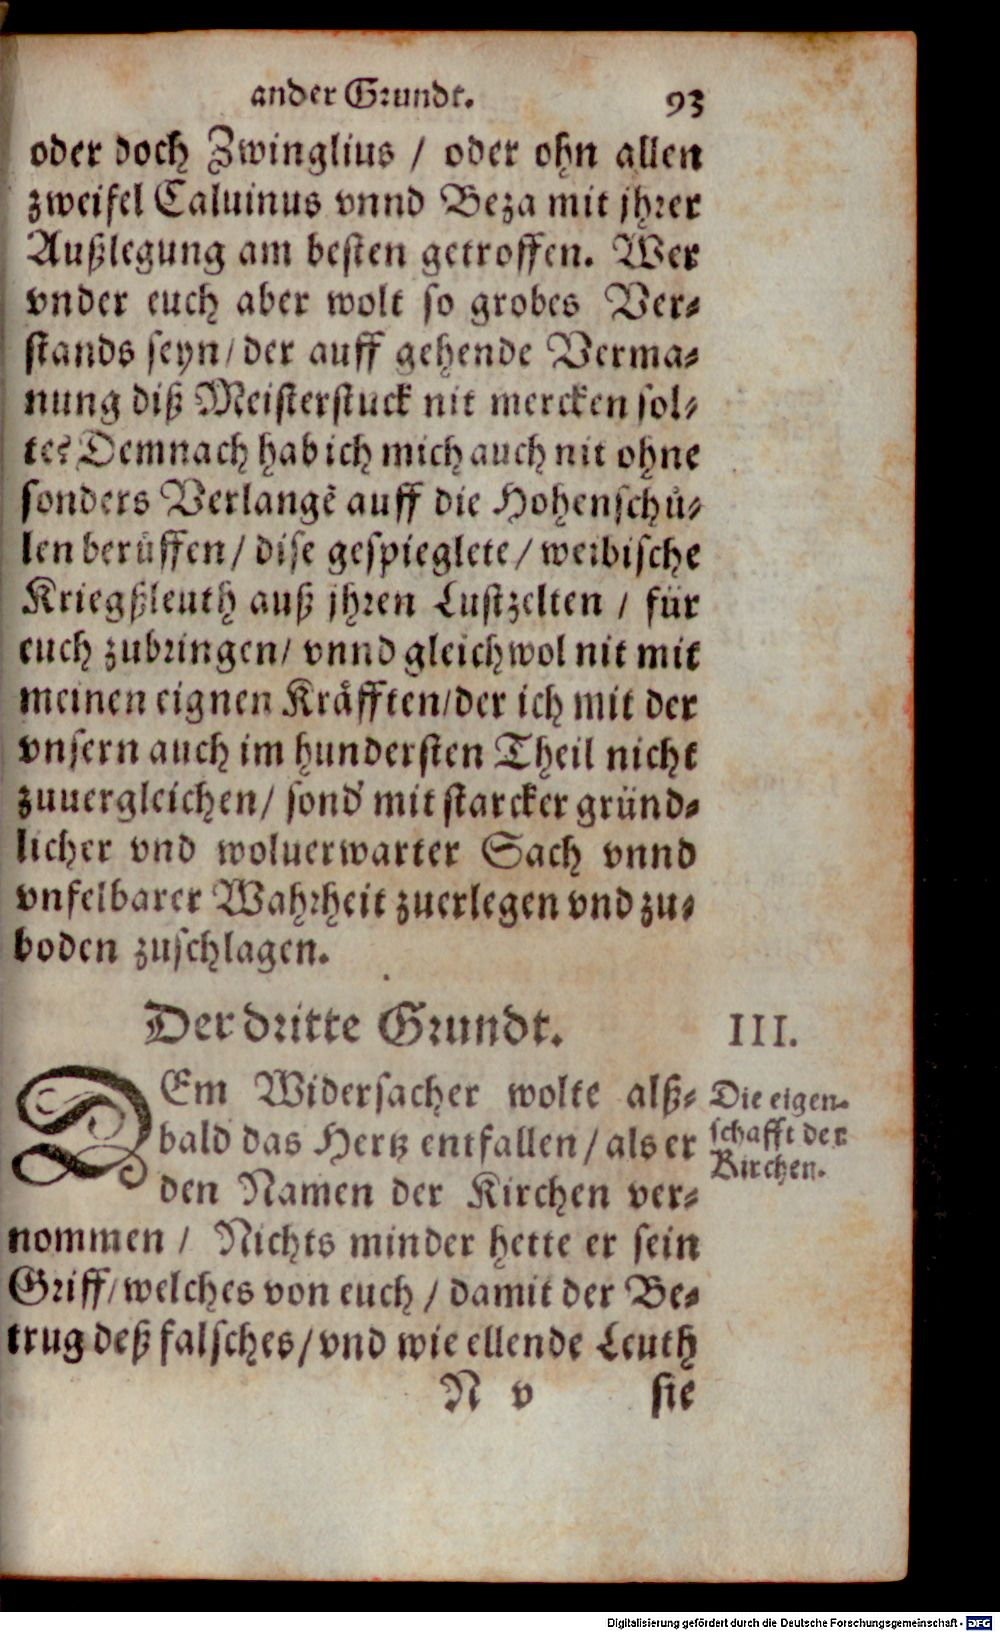 ander Grundt. 93
oder doch Zwinglius / oder ohn allen
zweifel Caluinus vnnd Beza mit jhrer
Außlegung am besten getroffen. Wer
vnder euch aber wolt so grobes Ver-
stands seyn / der auff gehende Verma-
nung diß Meisterstuck nit mercken sol-
te? Demnach hab ich mich auch nit ohne
sonders Verlangẽ auff die Hohenschuͤ-
len beruͤffen / dise gespieglete / weibische
Kriegßleuth auß jhren Lustzelten / für
euch zubringen / vnnd gleichwol nit mit
meinen eignen Kraͤfften / der ich mit der
vnsern auch im hundersten Theil nicht
zuuergleichen / sond' mit starcker gründ-
licher vnd woluerwarter Sach vnnd
vnfelbarer Wahrheit zuerlegen vnd zu-
boden zuschlagen.
Der dritte Grundt. III.
DEm Widersacher wolte alß-
bald das Hertz entfallen / als er
den Namen der Kirchen ver-
nommen / Nichts minder hette er sein
Griff / welches von euch / damit der Be-
trug deß falsches / vnd wie ellende Leuth
N v sie
Die eigen-
schafft der
Kirchen.
Digitalisierung gefördert durch die Deutsche Forschungsgemeinschaft - DFG